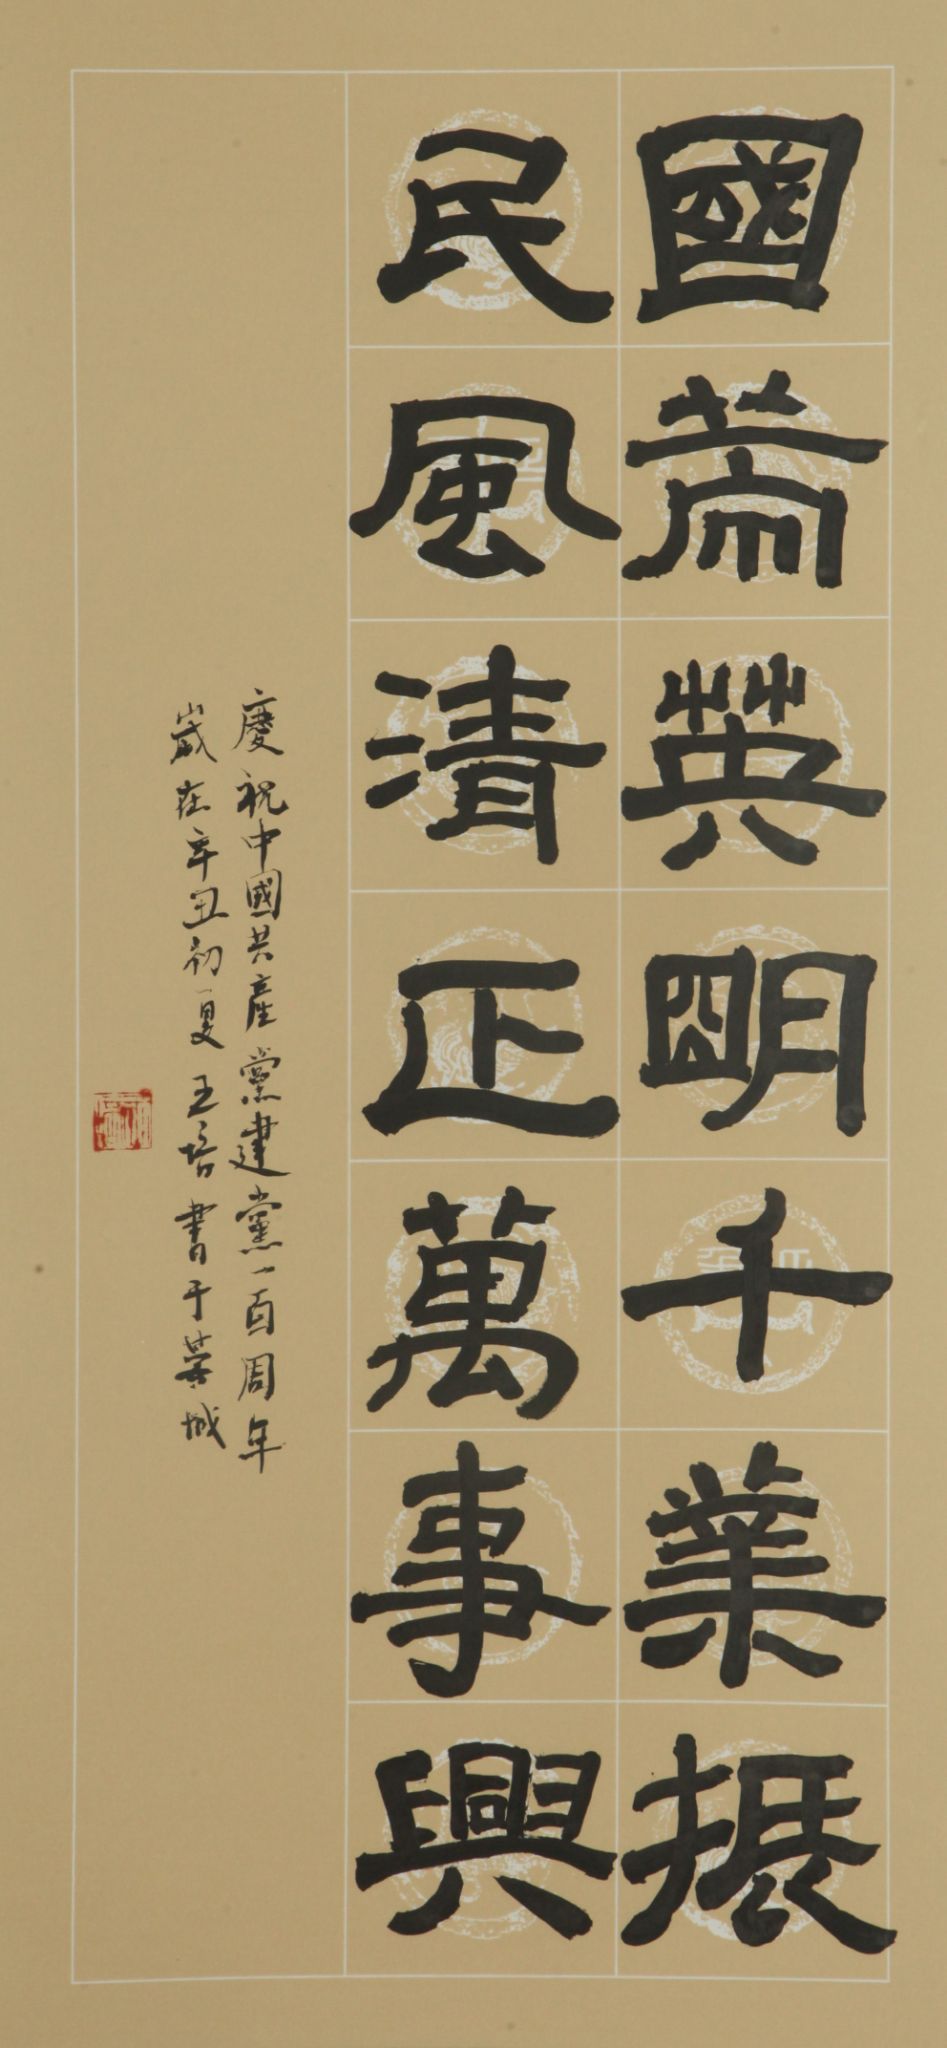 國策英明千業振
民風清正萬事興
慶祝中國共產黨建黨一百周年
歲在辛丑初夏 王培書于蓉城